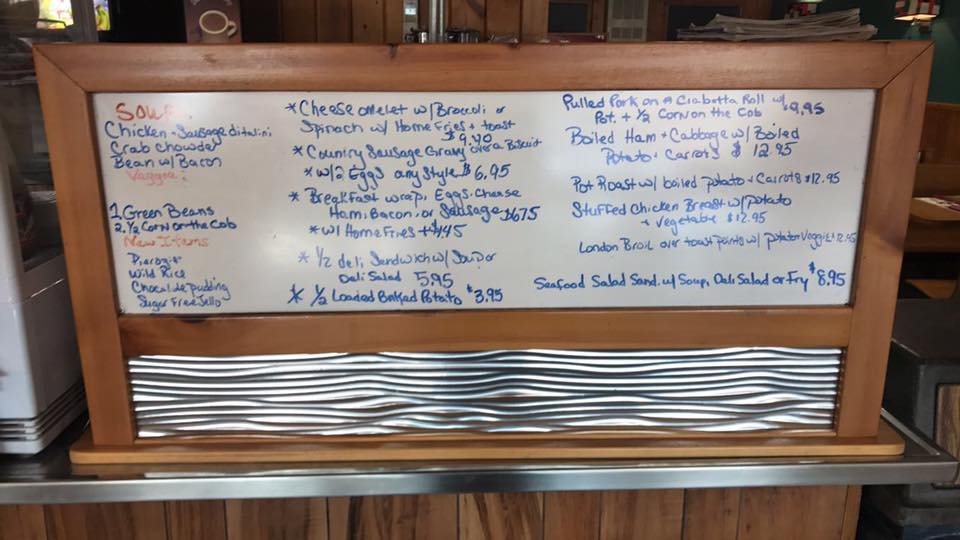 Soup
Chicken + Sausage ditalini
Crab chowder
Bean w/ Bacon
Veggie:
1. Green Beans
2. 1/2 Corn on the Cob
New Items
Pierogi
Wild Rice
Chocolate pudding
Sugar Free Jello
* Cheese omelet w/ Broccoli or
Spinach w/ Home Fries + toast
$9.40
* Country Sausage Gravy over a Biscuit
* w/ 2 Eggs any Style $6.95
* Breakfast wrap, Eggs, Cheese
Ham, Bacon, or Sausage $6.75
* w/ Home Fries + $1.45
* 1/2 deli Sandwich w/ Soup or
Deli Salad 5.95
* 1/2 Loaded Baked Potato $3.95
Pulled Pork on A Ciabatta Roll w/ $9.95
Pot. + 1/2 Corn on the Cob
Boiled Ham + Cabbage w/ Boiled
Potato + Carrots $12.95
Pot Roast w/ boiled potato + Carrots $12.95
Stuffed Chicken Breast w/ Potato
+ vegetable $12.95
London Broil over toast points w/ potato + Veggie $12.45
Seafood Salad Sand. w/ Soup, Deli Salad or Fry $8.95